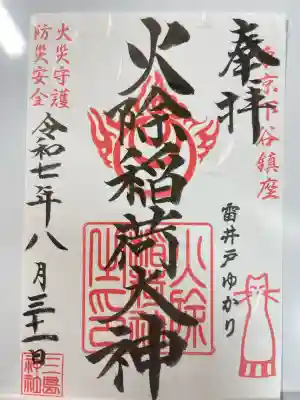 奉拝
東京下谷鎮座
雷井戸ゆかり
火除稲荷大神
火災守護
防災安全
令和七年八月三十一日
三島神社